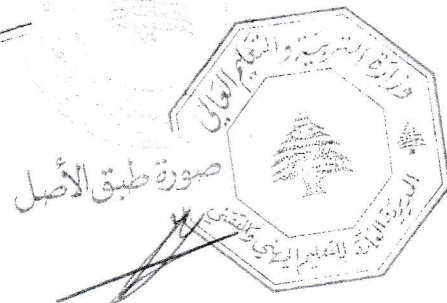 وزارة التربية والتعليم العالي
المديرية العامة للتعليم المهني والتقني
صورة طبق الأصل